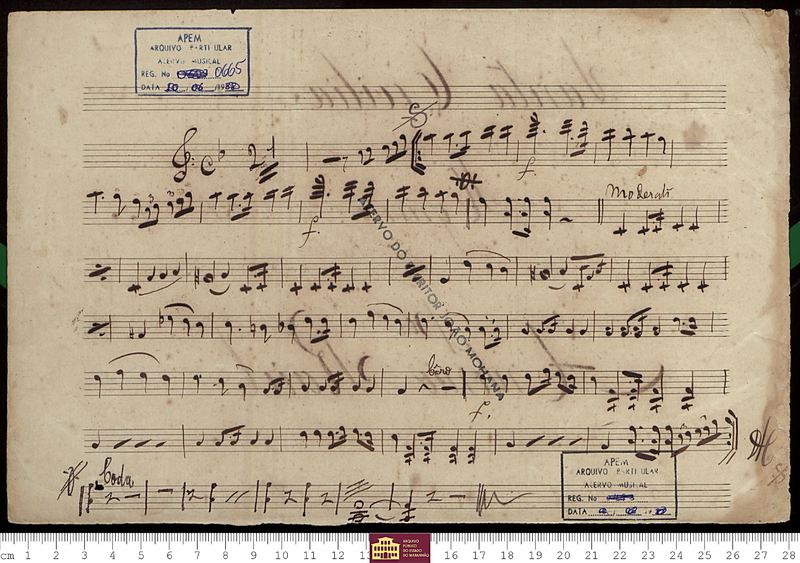 APEM
ARQUIVO PARTICULAR
ACERVO MUSICAL
REG. No 0665
DATA 10 / 06 / 198
f.
Moderato
f.
ACERVO DO ESCRITOR JOÃO MOHANA
Côro
f.
Coda
APEM
ARQUIVO PARTICULAR
ACERVO MUSICAL
REG. No
DATA
cm 1 2 3 4 5 6 7 8 9 10 11 12 13 16 17 18 19 20 21 22 23 24 25 26 27 28
ARQUIVO
PÚBLICO
DO ESTADO
DO MARANHÃO